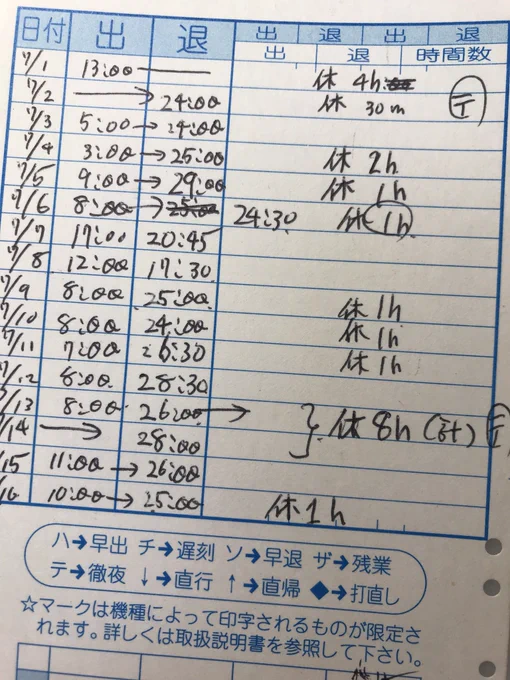 日付 出 退 出 退 出 退
出 退 時間数
7/1 13:00 休 4h
7/2 → 24:00 休 30m テ
7/3 5:00 → 24:00
7/4 3:00 → 25:00 休 2h
7/5 9:00 → 29:00 休 1h
7/6 8:00 → 25:00 24:30 休 1h
7/7 17:00 20:45
7/8 12:00 17:30
7/9 8:00 25:00 休 1h
7/10 8:00 24:00 休 1h
7/11 7:00 26:30 休 1h
7/12 8:00 28:30
7/13 8:00 26:00 →
7/14 → 28:00 休 8h (計) テ
/15 11:00 → 26:00
/16 10:00 → 25:00 休 1h
ハ→早出 チ→遅刻 ソ→早退 ザ→残業
テ→徹夜 ↓→直行 ↑→直帰 ◆→打直し
☆マークは機種によって印字されるものが限定さ
れます。詳しくは取扱説明書を参照して下さい。